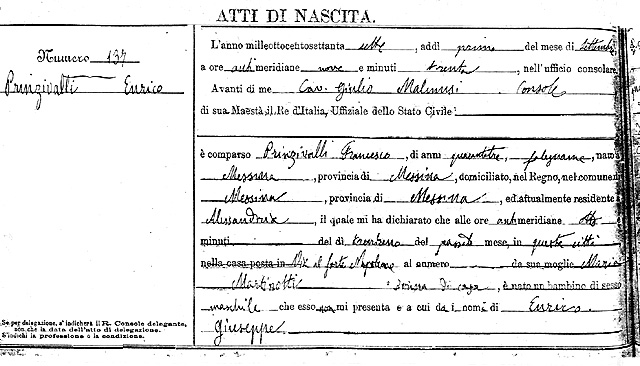 ATTI DI NASCITA.
Numero 137
Prinzivalli Enrico
L'anno milleottocentosettanta otto, addì primo del mese di settembre
a ore antimeridiane nove e minuti trenta, nell'ufficio consolare
Avanti di me Cav. Giulio Malmusi Console
di sua Maestà il Re d'Italia, Uffiziale dello Stato Civile
è comparso Prinzivalli Francesco, di anni quarantatre, falegname, nam
Messina, provincia di Messina, domiciliato, nel Regno, nel comune
Messina, provincia di Messina, ed attualmente residente
Alessandria, il quale mi ha dichiarato che alle ore antimeridiane,
minuti del dì trentuno del passato mese, in questa città
nella casa posta in Via al forte Napoleone al numero da sua moglie Maria
Martinotti donna di casa, è nato un bambino di sesso
maschile che esso non mi presenta e a cui da i nomi di Enrico
Giuseppe
Se per delegazione, s'indicherà il R. Console delegante,
non che la data dell'atto di delegazione.
S'indichi la professione o la condizione.